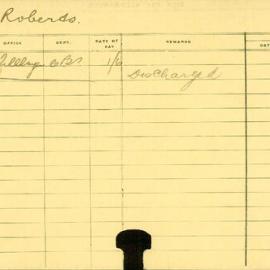 Roberts.
OFFICE DEPT. RATE OF PAY REMARKS DAT
1/6 Discharged